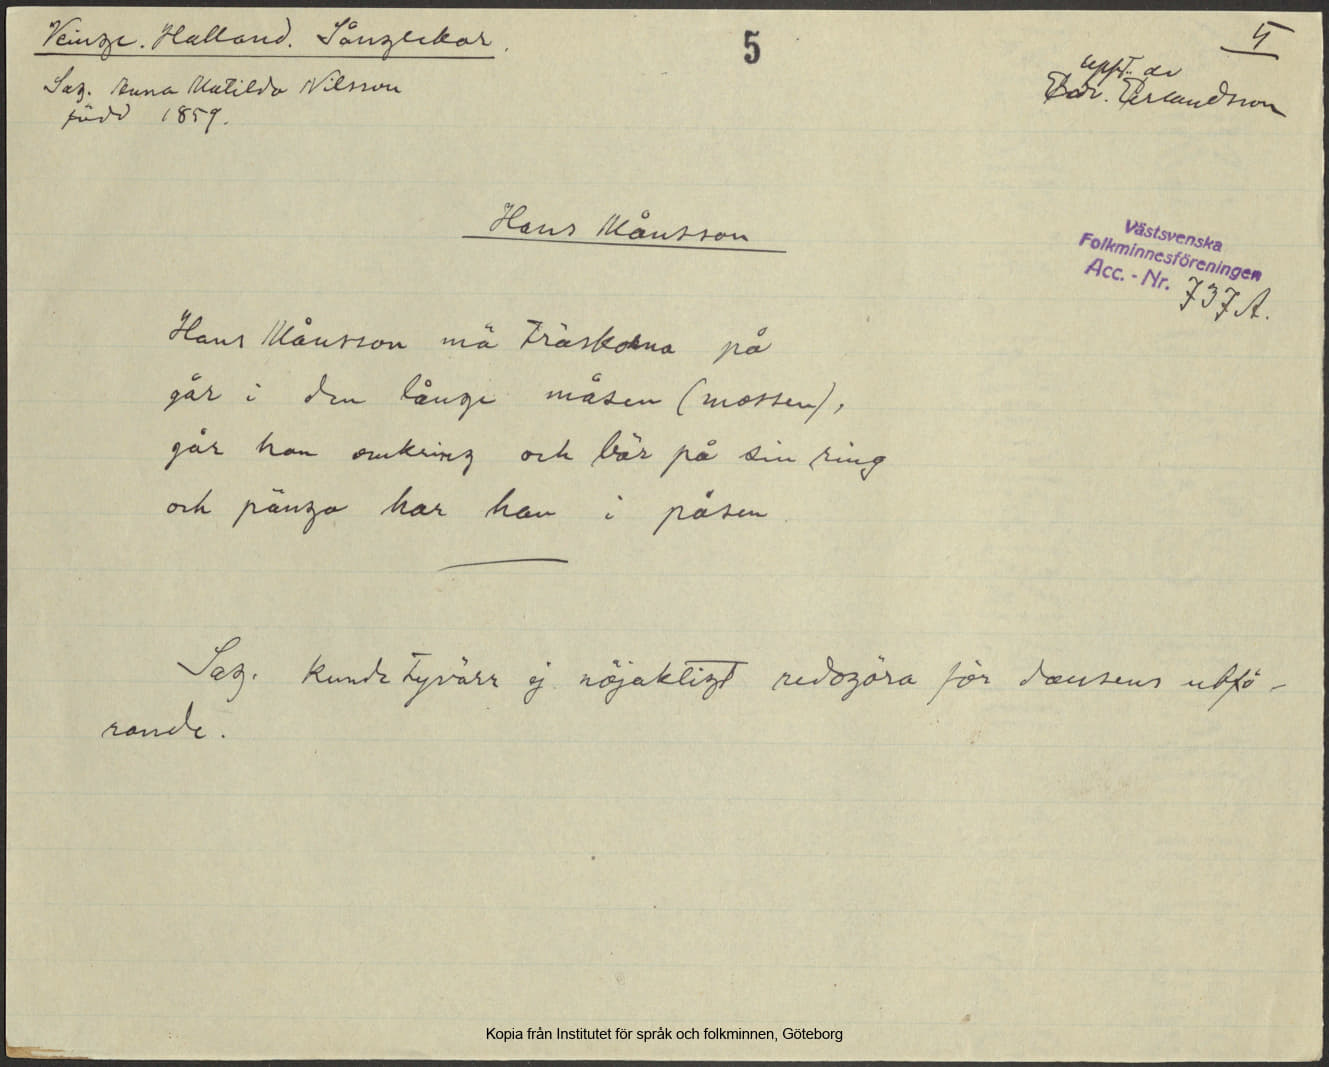 Veinge. Halland. Sånglekar.
5
5
Sag. Anna Matilda Nilsson
född 1859.
uppt. av
Edv. Erlandsson
Hans Månsson
Västsvenska
Folkminnesföreningen
Acc. - Nr. 737 A.
Hans Månsson mä träskorna på
går i den långe måsen (mossen),
går han omkring och bär på sin ring
och pänga har han i påsen
Sag. kunde tyvärr ej nöjaktigt redogöra för dansens utfö-
rande.
Kopia från Institutet för språk och folkminnen, Göteborg